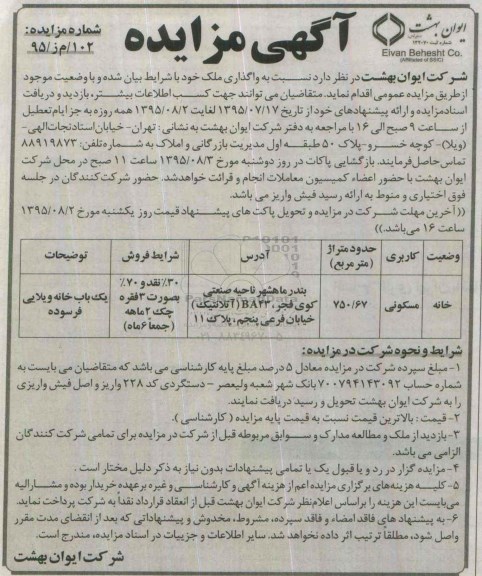 ایوان بهشت
Elvan Behesht Co.
(Affiliated of SSIC)
آگهی مزایده
شماره مزایده:
۱۰۲/م ز/۹۵
شرکت ایوان بهشت در نظر دارد نسبت به واگذاری ملک خود با شرایط بیان شده و با وضعیت موجود
از طریق مزایده عمومی اقدام نماید. متقاضیان می توانند جهت کسب اطلاعات بیشتر، بازدید و دریافت
اسناد مزایده و ارائه پیشنهادهای خود از تاریخ ۱۳۹۵/۰۷/۱۷ لغایت ۱۳۹۵/۰۸/۲ همه روزه به جز ایام تعطیل
از ساعت ۹ صبح الی ۱۶ با مراجعه به دفتر شرکت ایوان بهشت به نشانی: تهران- خیابان استاد نجات الهی-
(ویلا)- کوچه خسرو- پلاک ۵۰ طبقه اول مدیریت بازرگانی و املاک به شماره تلفن: ۸۸۹۱۹۸۷۳
تماس حاصل فرمایند. بازگشایی پاکات در روز دوشنبه مورخ ۱۳۹۵/۰۸/۳ ساعت ۱۱ صبح در محل شرکت
ایوان بهشت با حضور اعضاء کمیسیون معاملات انجام و قرائت خواهد شد. حضور شرکت کنندگان در جلسه
فوق اختیاری و منوط به ارائه رسید فیش واریز می باشد.
(( آخرین مهلت شرکت در مزایده و تحویل پاکت های پیشنهاد قیمت روز یکشنبه مورخ ۱۳۹۵/۰۸/۲
ساعت ۱۶ می باشد.))
وضعیت کاربری حدود متراژ (متر مربع) آدرس شرایط فروش توضیحات
خانه مسکونی ۷۵۰/۶۷ بندر ماهشهر ناحیه صنعتی کوی فجر، BA۲۳ (آتلانتیک) خیابان فرعی پنجم، پلاک ۱۱ ۳۰٪ نقد و ۷۰٪ بصورت ۳ فقره چک ۲ ماهه (جمعاً ۶ ماه) یک باب خانه ویلایی فرسوده
شرایط و نحوه شرکت در مزایده:
۱- مبلغ سپرده شرکت در مزایده معادل ۵ درصد مبلغ پایه کارشناسی می باشد که متقاضیان می بایست به
شماره حساب ۷۰۰۷۹۴۱۴۳۰۹۲ بانک شهر شعبه ولیعصر - دستگردی کد ۲۲۸ واریز و اصل فیش واریزی
را به شرکت ایوان بهشت تحویل و رسید دریافت نمایند.
۲- قیمت: بالاترین قیمت نسبت به قیمت پایه مزایده (کارشناسی).
۳- بازدید از ملک و مطالعه مدارک و سوابق مربوطه قبل از شرکت در مزایده برای تمامی شرکت کنندگان
الزامی می باشد.
۴- مزایده گزار در رد و یا قبول یک یا تمامی پیشنهادات بدون نیاز به ذکر دلیل مختار است.
۵- کلیه هزینه های برگزاری مزایده اعم از هزینه آگهی و کارشناسی و غیره بر عهده خریدار بوده و مشارالیه
می بایست این هزینه را براساس اعلام نظر شرکت ایوان بهشت قبل از انعقاد قرارداد نقداً به شرکت پرداخت نماید.
۶- به پیشنهاد های فاقد امضاء و فاقد سپرده، مشروط، مخدوش و پیشنهاداتی که بعد از انقضای مدت مقرر
واصل شود، مطلقاً ترتیب اثر داده نخواهد شد. سایر اطلاعات و جزییات در اسناد مزایده، مندرج است.
شرکت ایوان بهشت